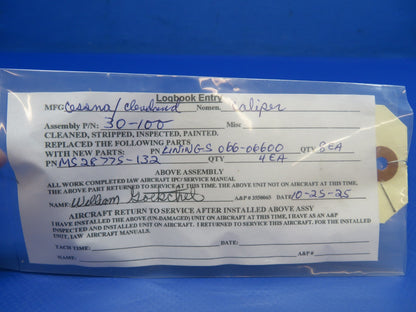 Logbook Entry
MFG Cessna/Cleveland Nomen. Caliper
Assembly P/N: 30-100 Misc
CLEANED, STRIPPED, INSPECTED, PAINTED.
REPLACED THE FOLLOWING PARTS
WITH NEW PARTS: PN LININGS 066-06600 QTY 8EA
PN MS28775-132 QTY 4EA
ABOVE ASSEMBLY
ALL WORK COMPLETED IAW AIRCRAFT IPC/ SERVICE MANUAL
THE ABOVE PART RETURNED TO SERVICE AT THIS TIME. THE ABOVE UNIT NOT ON AIRCRAFT AT THIS TIME.
NAME: William A&P # 3550063 DATE 10-25-25
AIRCRAFT RETURN TO SERVICE AFTER INSTALLED ABOVE ASSY
I HAVE INSTALLED THE ABOVE (UN-DAMAGED) UNIT ON AIRCRAFT AT THIS TIME, I HAVE AS AN A&P
INSPECTED AND INSTALLED UNIT ON AIRCRAFT. I RETURNED TO SERVICE THIS AIRCRAFT. FOR THE INSTALLED
UNIT, IAW AIRCRAFT MANUALS.
TACH TIME: DATE:
NAME: A&P#